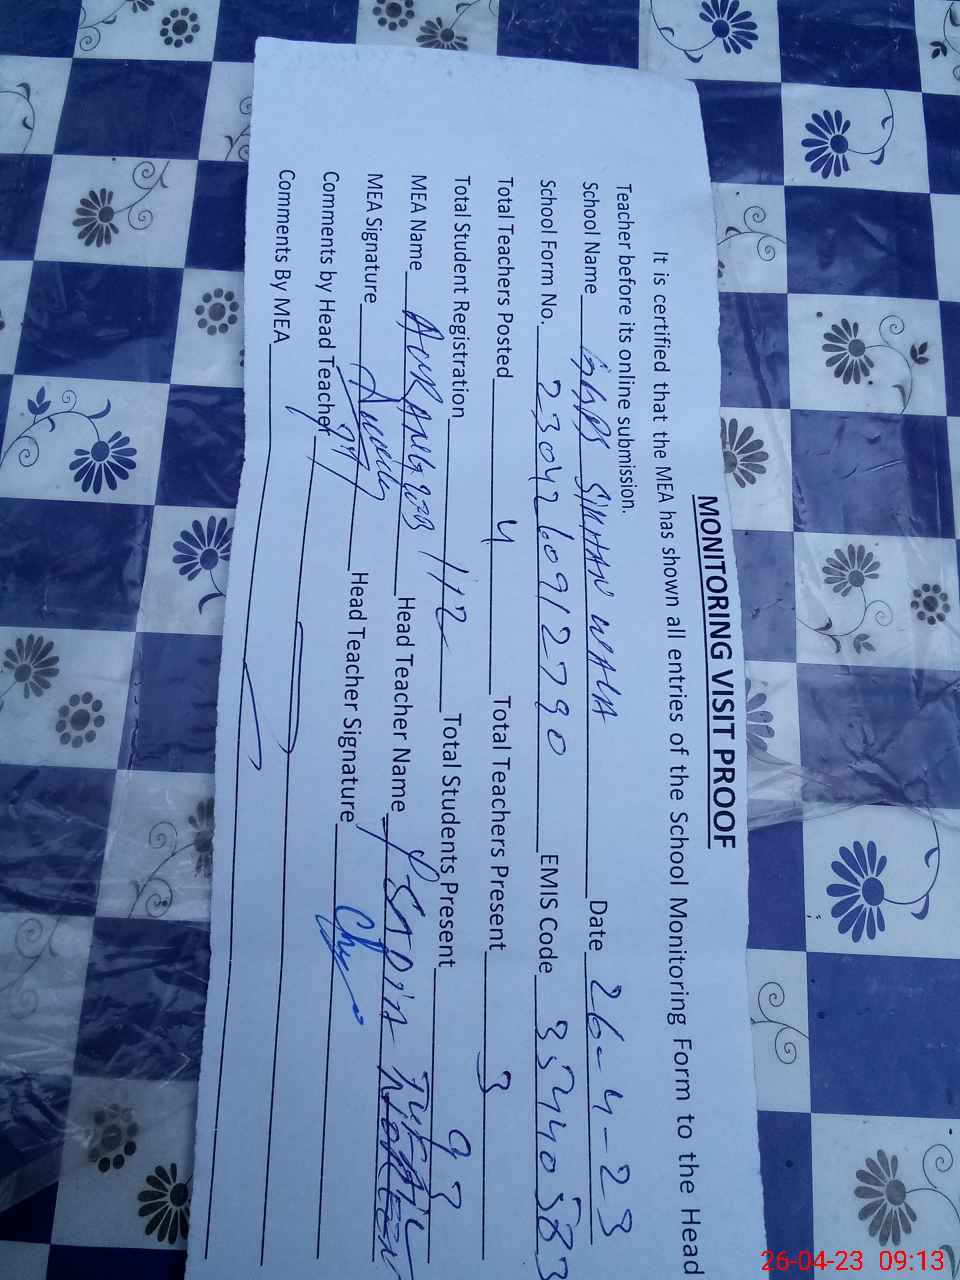 MONITORING VISIT PROOF
It is certified that the MEA has shown all entries of the School Monitoring Form to the Head
Teacher before its online submission.
School Name GGPS SIKHAN WALA Date 26-4-23
School Form No. 2304260912790 EMIS Code 35440583
Total Teachers Posted 4 Total Teachers Present 3
Total Student Registration 112 Total Students Present 93
MEA Name AURANGZEB Head Teacher Name
MEA Signature Head Teacher Signature
Comments by Head Teacher
Comments By MEA
26-04-23 09:13